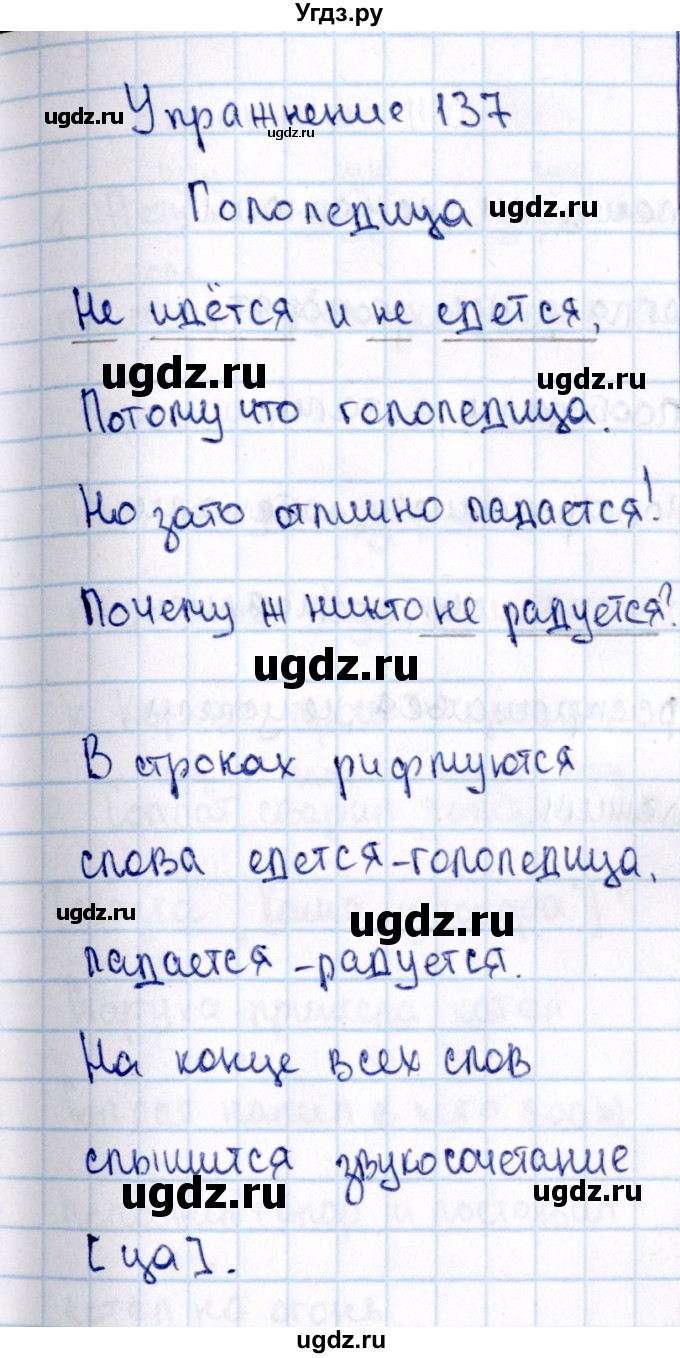 Угдз.ру
Упражнение 137
ugdz.ru
ugdz.ru
Гололедица
ugdz.ru
Не идётся и не едется,
ugdz.ru
ugdz.ru
Потому что гололедица.
Но зато отлично падается!
Почему ж никто не радуется?
ugdz.ru
В строках рифмуются
слова едется-гололедица,
ugdz.ru
ugdz.ru
падается-радуется.
На конце всех слов
слышится звукосочетание
ugdz.ru
ugdz.ru
[ца].
ugdz.ru